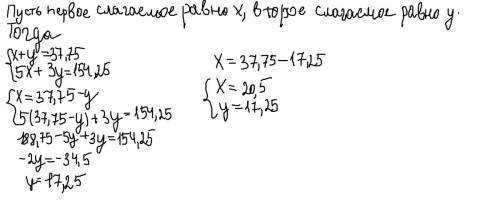 Пусть первое слагаемое равно x, второе слагаемое равно y.
Тогда
{x+y=37,75
5x+3y=154,25
{x=37,75-y
5(37,75-y)+3y=154,25
188,75-5y+3y=154,25
-2y=-34,5
y=17,25
x=37,75-17,25
{x=20,5
y=17,25